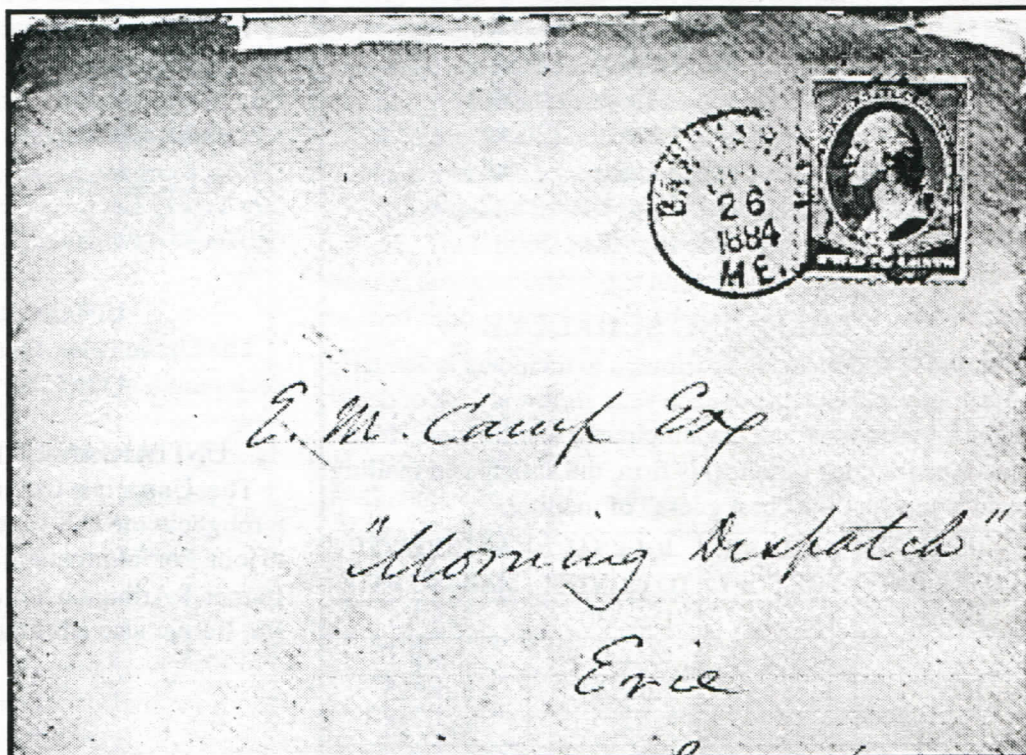 BAR HARBOR
26
1884
ME.
E. M. Camp Esq
"Morning Dispatch"
Erie